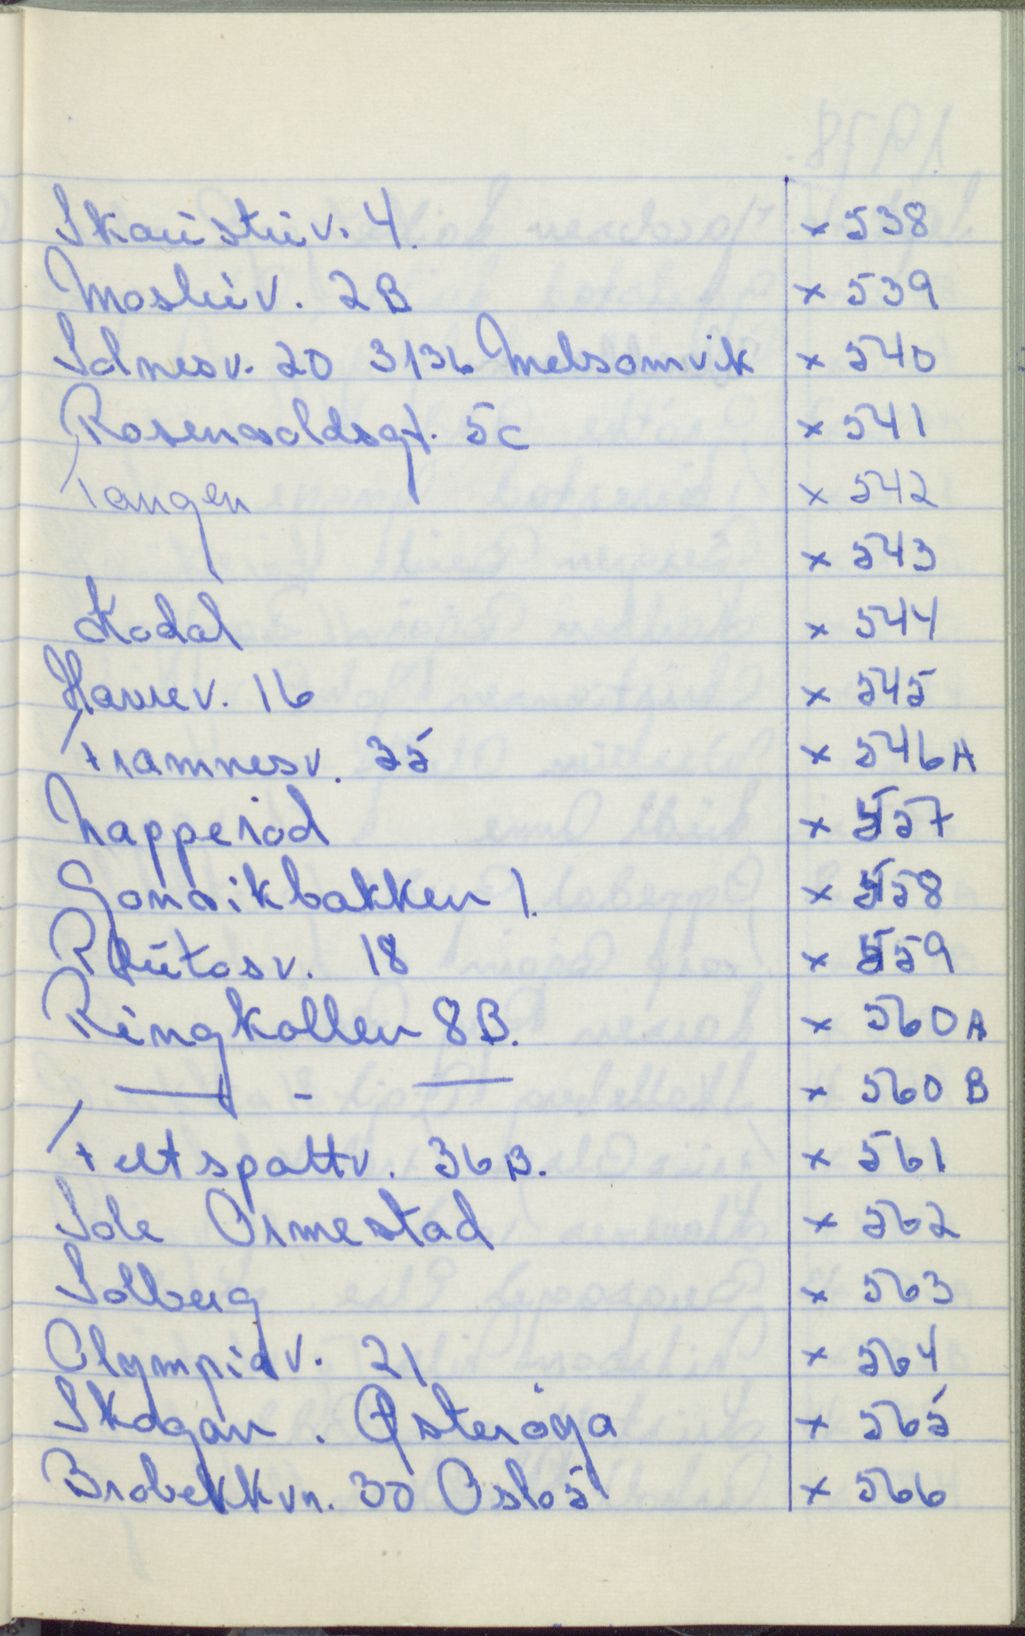 Skaustuv. 4. x 538
Mosluv. 2B x 539
Solnesv. 20 3136 Melsomvik x 540
Rosenvoldsgt. 5c x 541
Tangen x 542
x 543
Kodal x 544
Haurev. 16 x 545
Framnesv. 35 x 546A
Napperød x 557
Gonvikbakken 1. x 558
Plutosv. 18 x 559
Ringkollen 8B. x 560A
— " — x 560 B
Feltspattv. 36B. x 561
Sole Ormestad x 562
Solberg x 563
Olympiav. 21 x 564
Skogan. Østerøya x 565
Brobekkvn. 30 Oslo 5 x 566